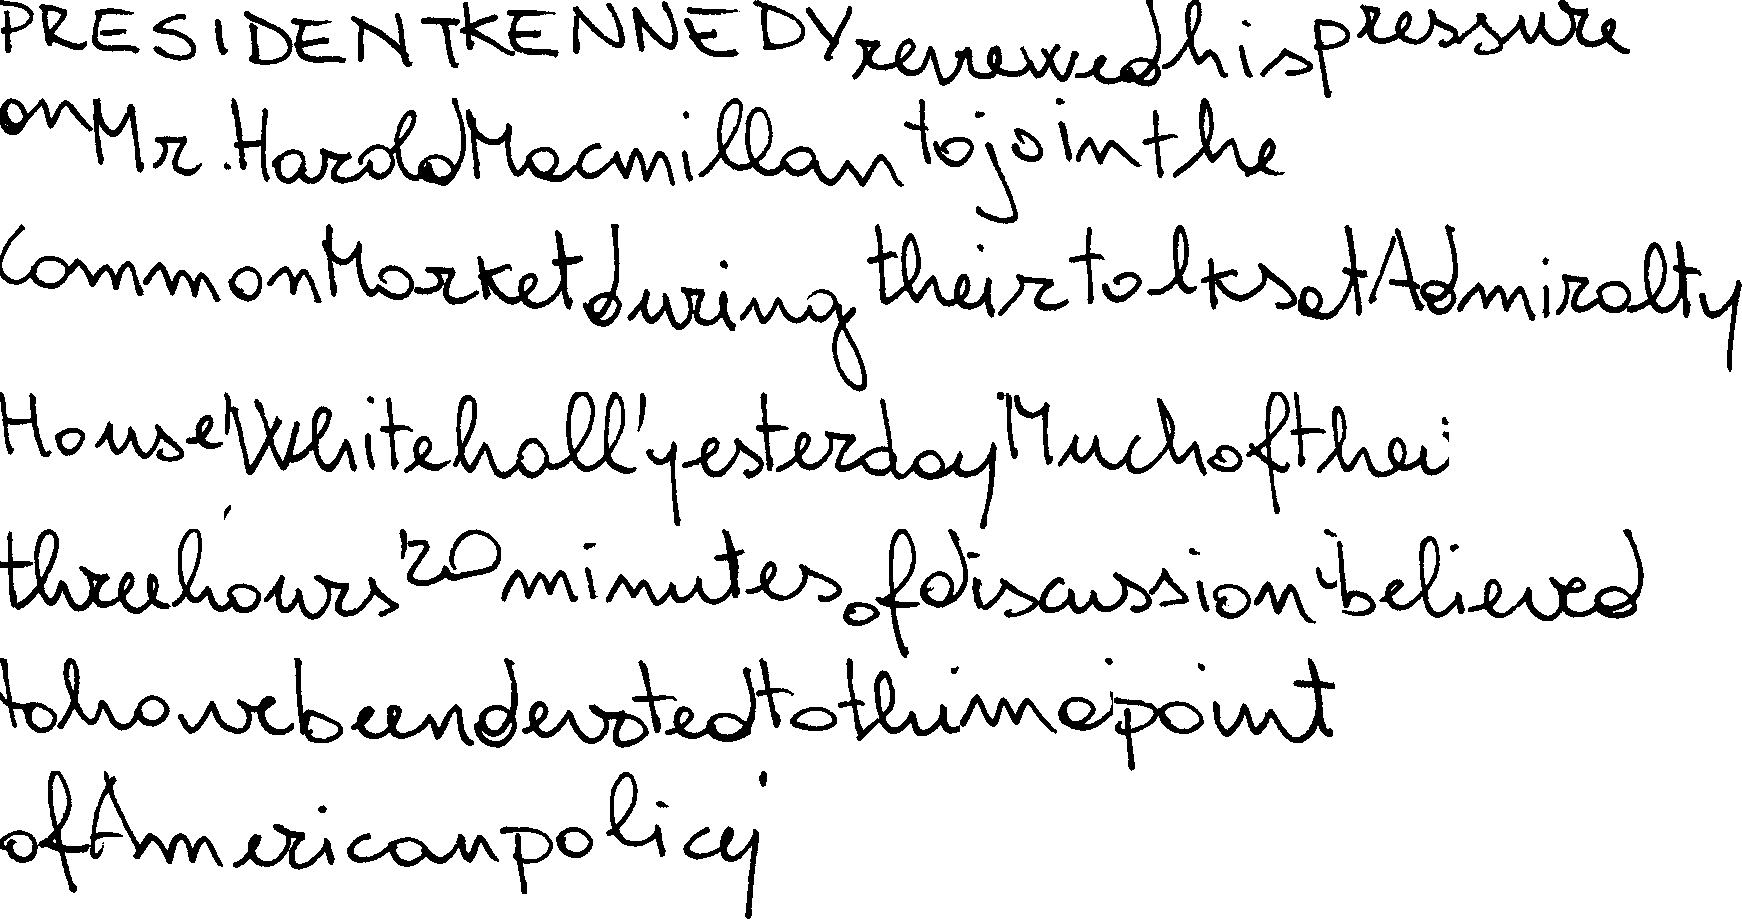 PRESIDENT KENNEDY renewed his pressure
on Mr. Harold Macmillan to join the
Common Market during their talks at Admiralty
House, Whitehall, yesterday. Much of their
three hours 20 minutes of discussion is believed
to have been devoted to this main point
of American policy.